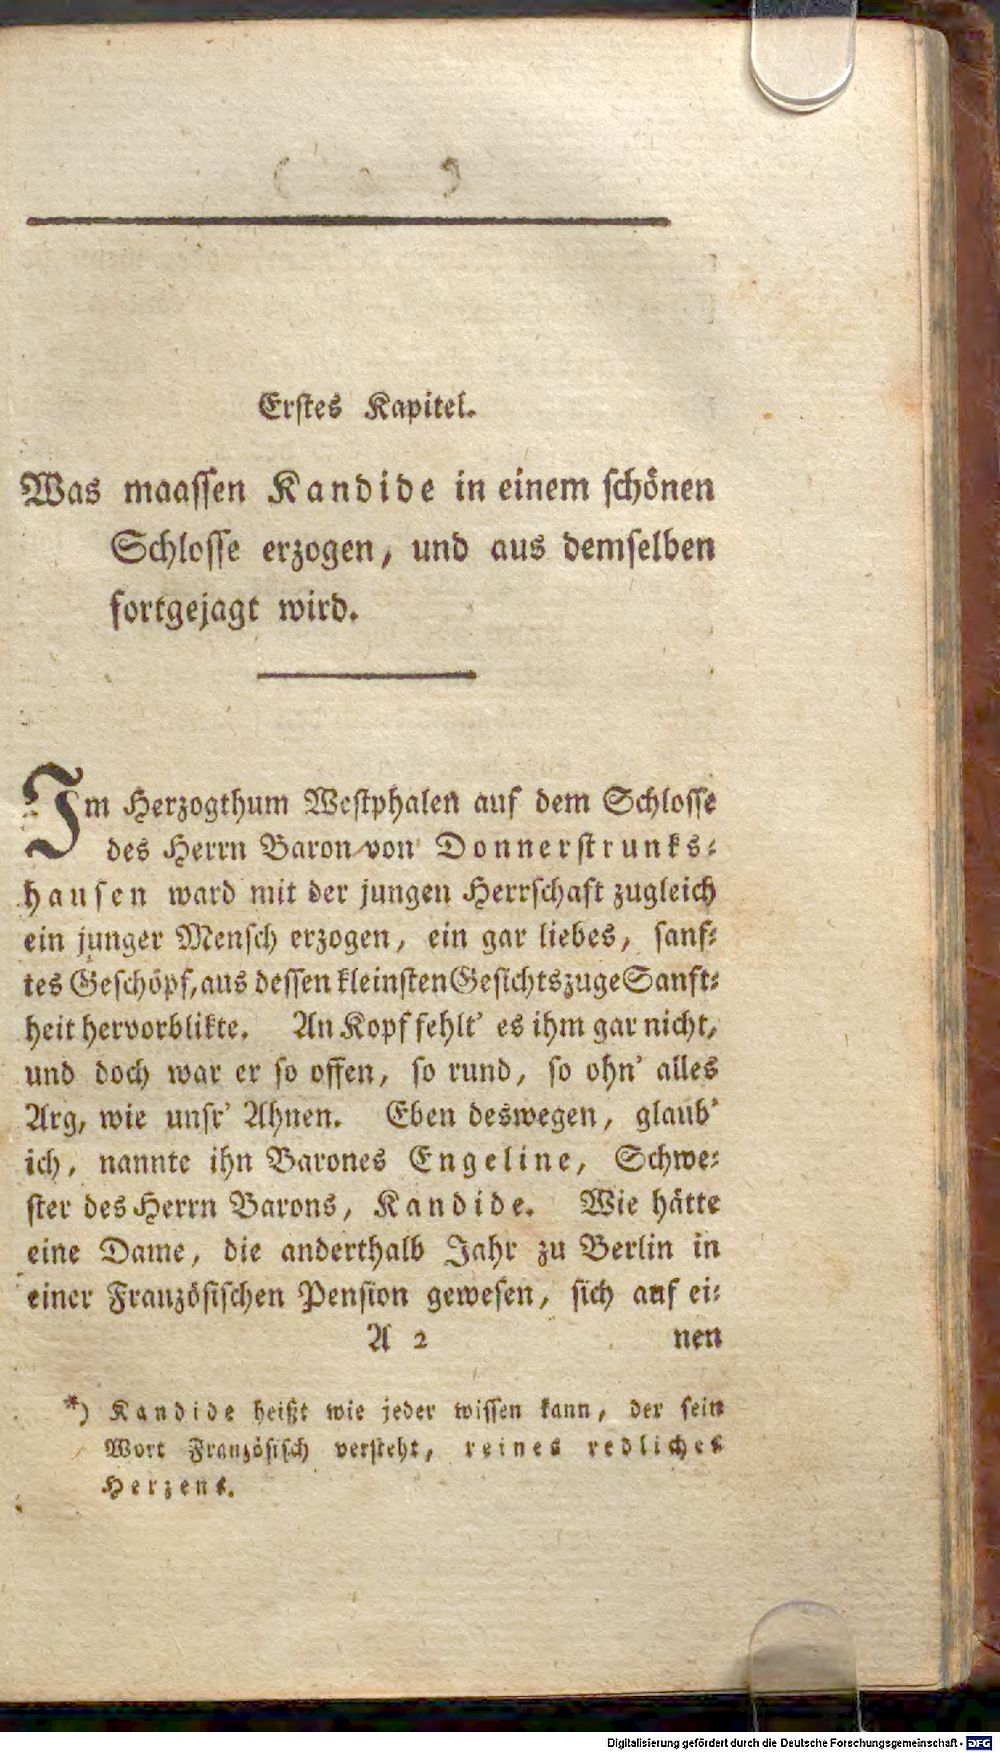 Erstes Kapitel.
Was maassen Kandide in einem schönen
Schlosse erzogen, und aus demselben
fortgejagt wird.
Im Herzogthum Westphalen auf dem Schlosse
des Herrn Baron von Donnerstrunks⸗
hausen ward mit der jungen Herrschaft zugleich
ein junger Mensch erzogen, ein gar liebes, sanf⸗
tes Geschöpf, aus dessen kleinsten Gesichtszuge Sanft⸗
heit hervorblikte. An Kopf fehlt' es ihm gar nicht,
und doch war er so offen, so rund, so ohn' alles
Arg, wie unsr' Ahnen. Eben deswegen, glaub'
ich, nannte ihn Barones Engeline, Schwe⸗
ster des Herrn Barons, Kandide. Wie hätte
eine Dame, die anderthalb Jahr zu Berlin in
einer Französischen Pension gewesen, sich auf ei⸗
A 2 nen
*) Kandide heißt wie jeder wissen kann, der sein
Wort Französisch versteht, reines redliches
Herzens.
Digitalisierung gefördert durch die Deutsche Forschungsgemeinschaft - DFG